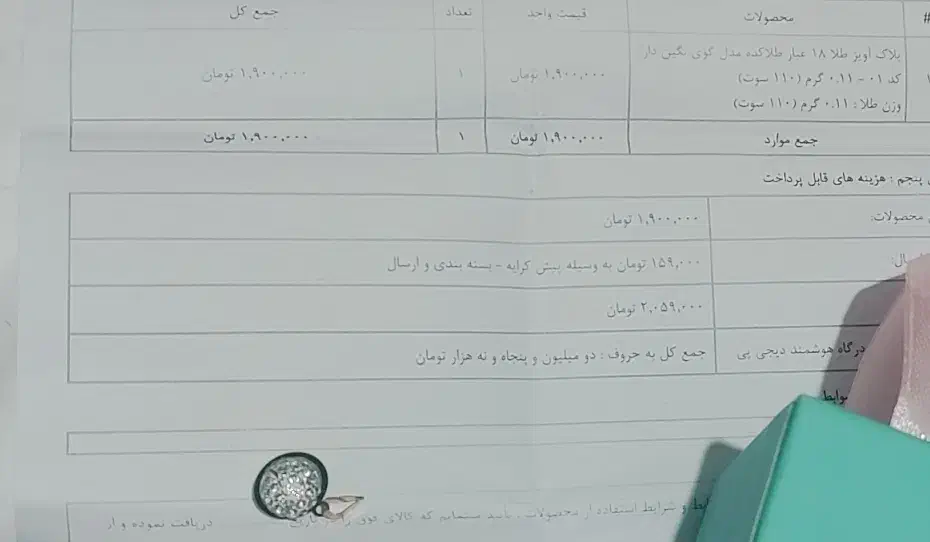 # محصولات قیمت واحد تعداد جمع کل
۱ پلاک آویز طلا ۱۸ عیار طلاکده مدل گوی نگین دار ۱,۹۰۰,۰۰۰ تومان ۱ ۱,۹۰۰,۰۰۰ تومان
کد ۰۱ - ۰.۱۱ گرم (۱۱۰ سوت)
وزن طلا : ۰.۱۱ گرم (۱۱۰ سوت)
جمع موارد ۱,۹۰۰,۰۰۰ تومان ۱ ۱,۹۰۰,۰۰۰ تومان
پنجم : هزینه های قابل پرداخت
محصولات: ۱,۹۰۰,۰۰۰ تومان
۱۵۹,۰۰۰ تومان به وسیله پیش کرایه - بسته بندی و ارسال
۲,۰۵۹,۰۰۰ تومان
درگاه هوشمند دیجی پی جمع کل به حروف : دو میلیون و پنجاه و نه هزار تومان
و شرایط استفاده از محصولات ، تأیید مینمایم که کالای فوق را دریافت نموده و از